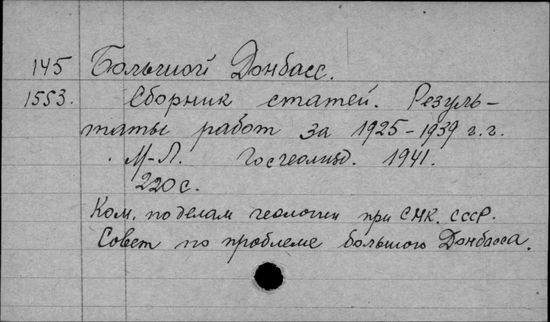 145 Большой Донбасс.
1553. Сборник статей. Резуль-
таты работ за 1925-1939 г.г.
М-Л. Госгеолизд. 1941.
220 с.
Ком. по делам геологии при СНК. СССР.
Совет по проблеме большого Донбасса.